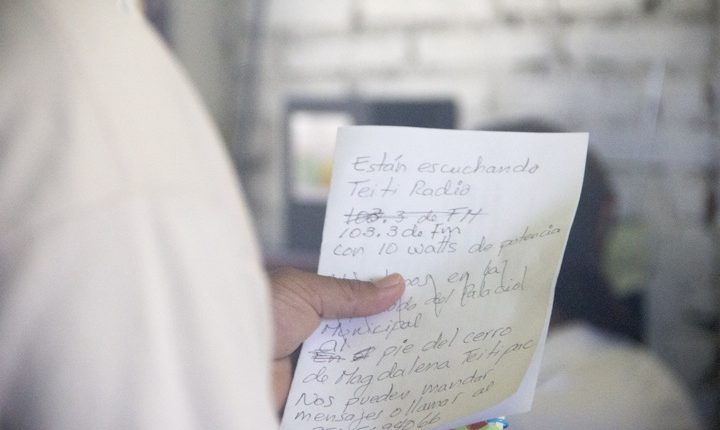 Están escuchando
Teiti Radio
103.3 de FM
103.3 de Fm
con 10 watts de potencia
en la
del Palacio
Municipal
Al
En el pie del cerro
de Magdalena Teitipac
Nos pueden mandar
mensajes o llamar al